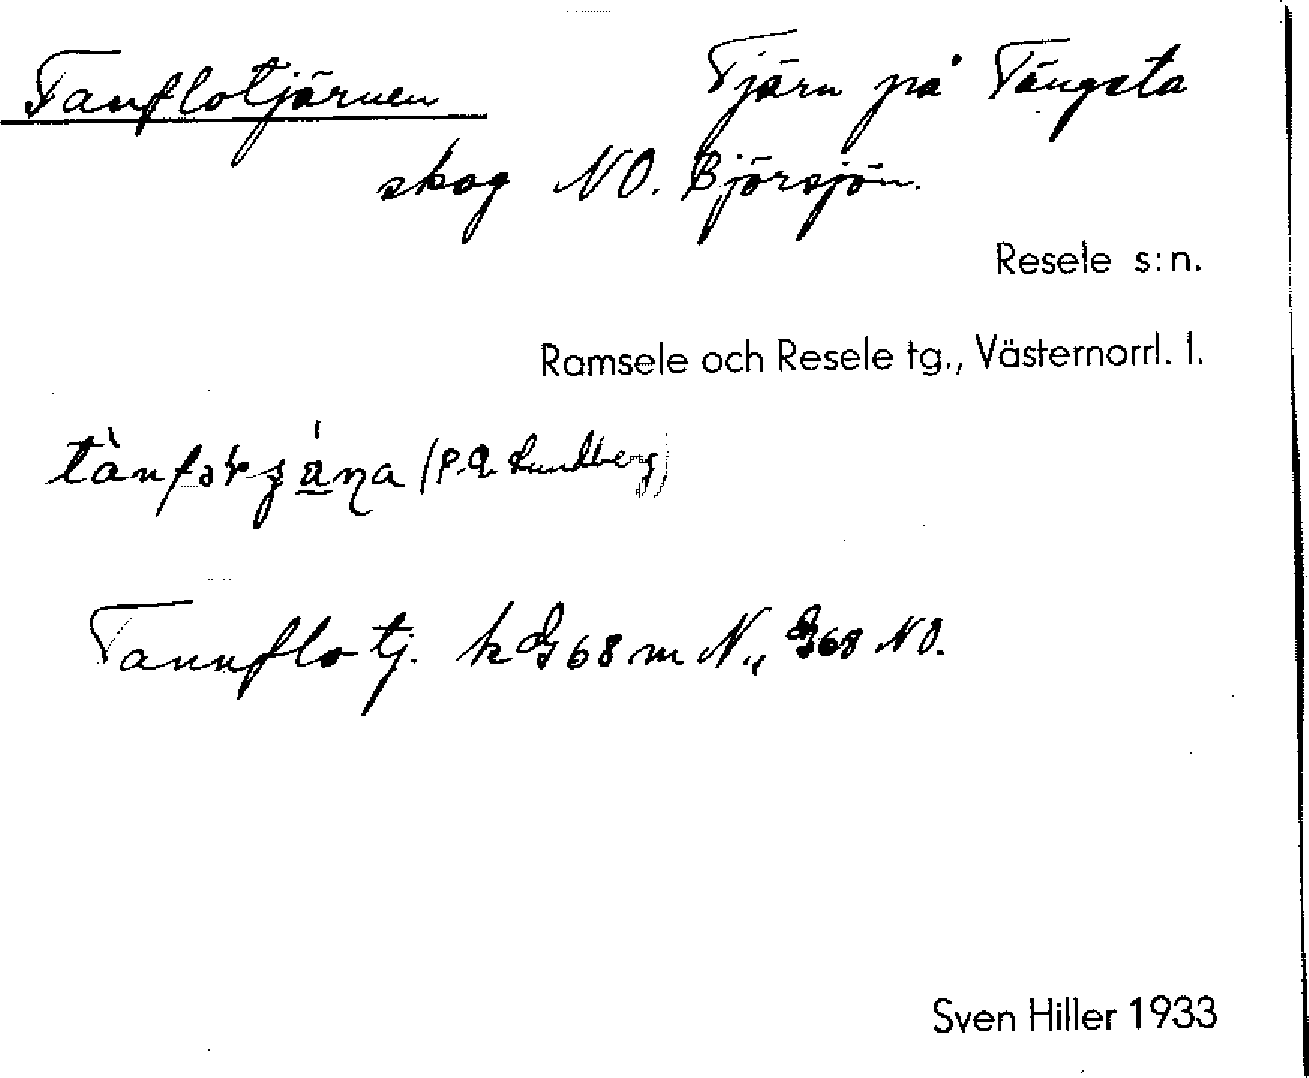 Tanflotjärnen Tjärn på Tängsta
skog NO. Björsjön.
Resele s:n.
Ramsele och Resele tg., Västernorrl. l.
(P.A. Lundberg)
Tannflotj. k 68 m N., 68 NO.
Sven Hiller 1933